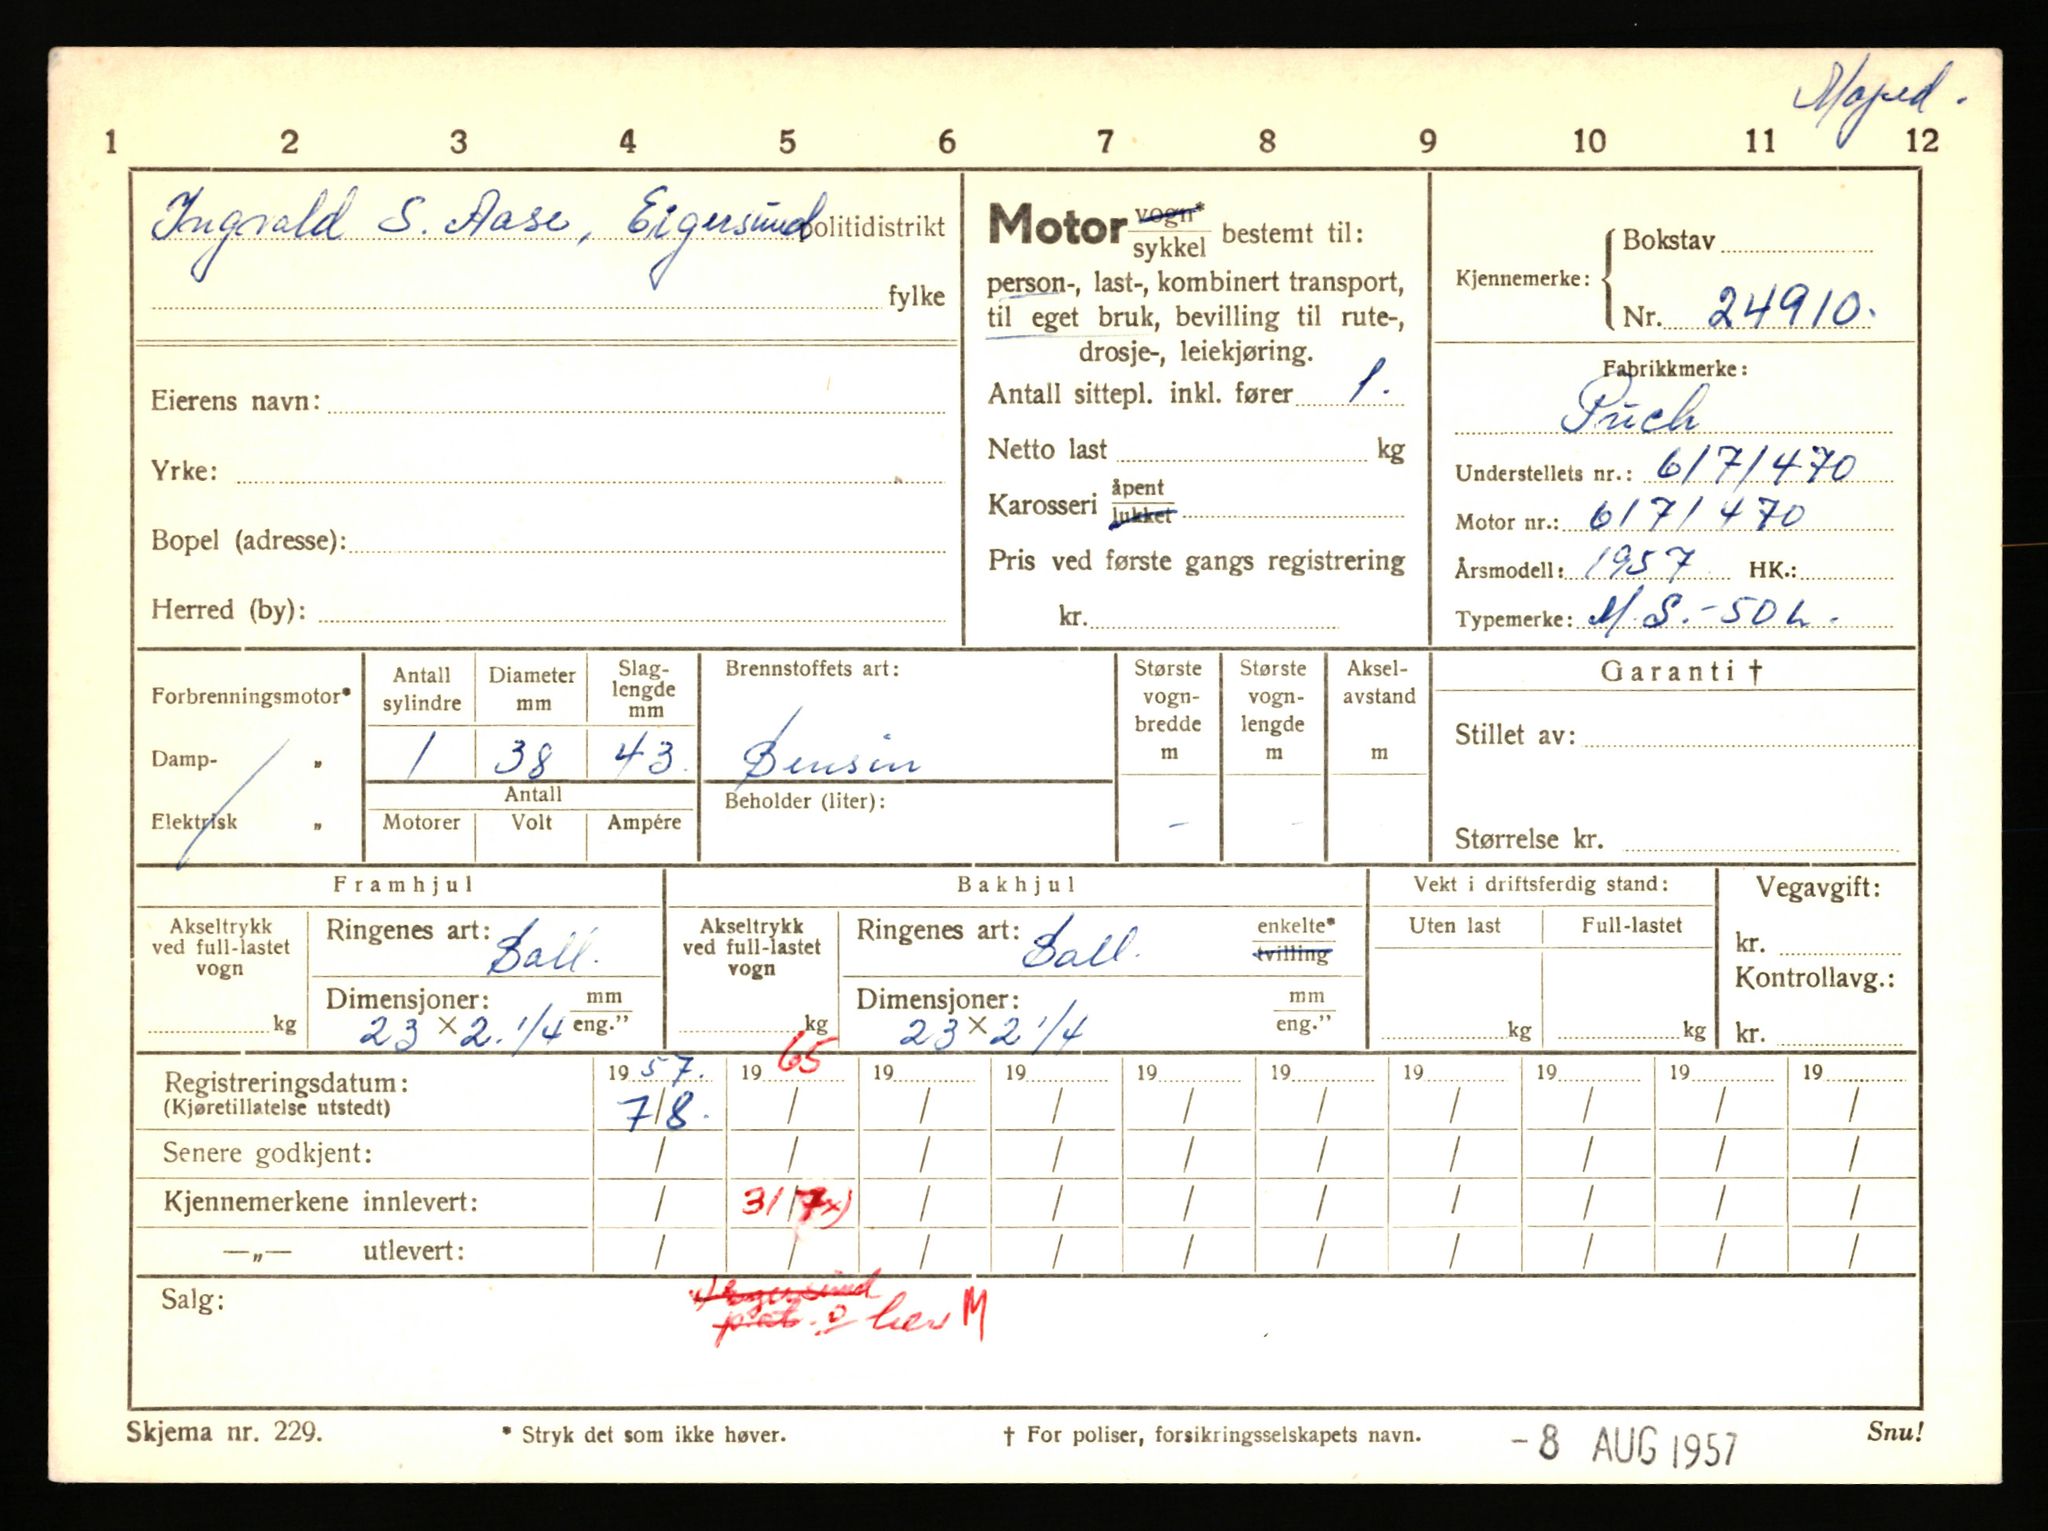 Moped.
1 2 3 4 5 6 7 8 9 10 11 12
Ingvald S. Aase, Eigersund politidistrikt
fylke
Eierens navn:
Yrke:
Bopel (adresse):
Herred (by):
Motor vogn* sykkel bestemt til:
person-, last-, kombinert transport,
til eget bruk, bevilling til rute-,
drosje-, leiekjøring.
Antall sittepl. inkl. fører 1.
Netto last kg
Karosseri åpent lukket
Pris ved første gangs registrering
kr.
Kjennemerke: Bokstav
Nr. 24910.
Fabrikkmerke:
Puch
Understellets nr.: 6171470
Motor nr.: 6171470
Årsmodell: 1957 HK.:
Typemerke: M.S.-50 L.
Forbrenningsmotor*
Damp- „
Elektrisk „
Antall sylindre
Diameter mm
Slaglengde mm
1 38 43.
Antall
Motorer Volt Ampére
Brennstoffets art:
Bensin
Beholder (liter):
Største vognbredde m
Største vognlengde m
Akselavstand m
- -
Garanti †
Stillet av:
Størrelse kr.
Framhjul
Akseltrykk ved full-lastet vogn
kg
Ringenes art: Ball.
Dimensjoner: mm eng."
23 × 2. 1/4
Bakhjul
Akseltrykk ved full-lastet vogn
kg
Ringenes art: Ball. enkelte* tvilling
Dimensjoner: mm eng."
23 × 2 1/4
Vekt i driftsferdig stand:
Uten last Full-lastet
kg kg
Vegavgift:
kr.
Kontrollavg.:
kr.
Registreringsdatum: 19 57. 19 65 19 19 19 19 19 19 19 19
(Kjøretillatelse utstedt) 7/8. / / / / / / / / /
Senere godkjent: / / / / / / / / / /
Kjennemerkene innlevert: / 31/7 x) / / / / / / / /
—„— utlevert: / / / / / / / / / /
Salg:
M
Skjema nr. 229.
* Stryk det som ikke høver.
† For poliser, forsikringsselskapets navn.
-8 AUG 1957
Snu!